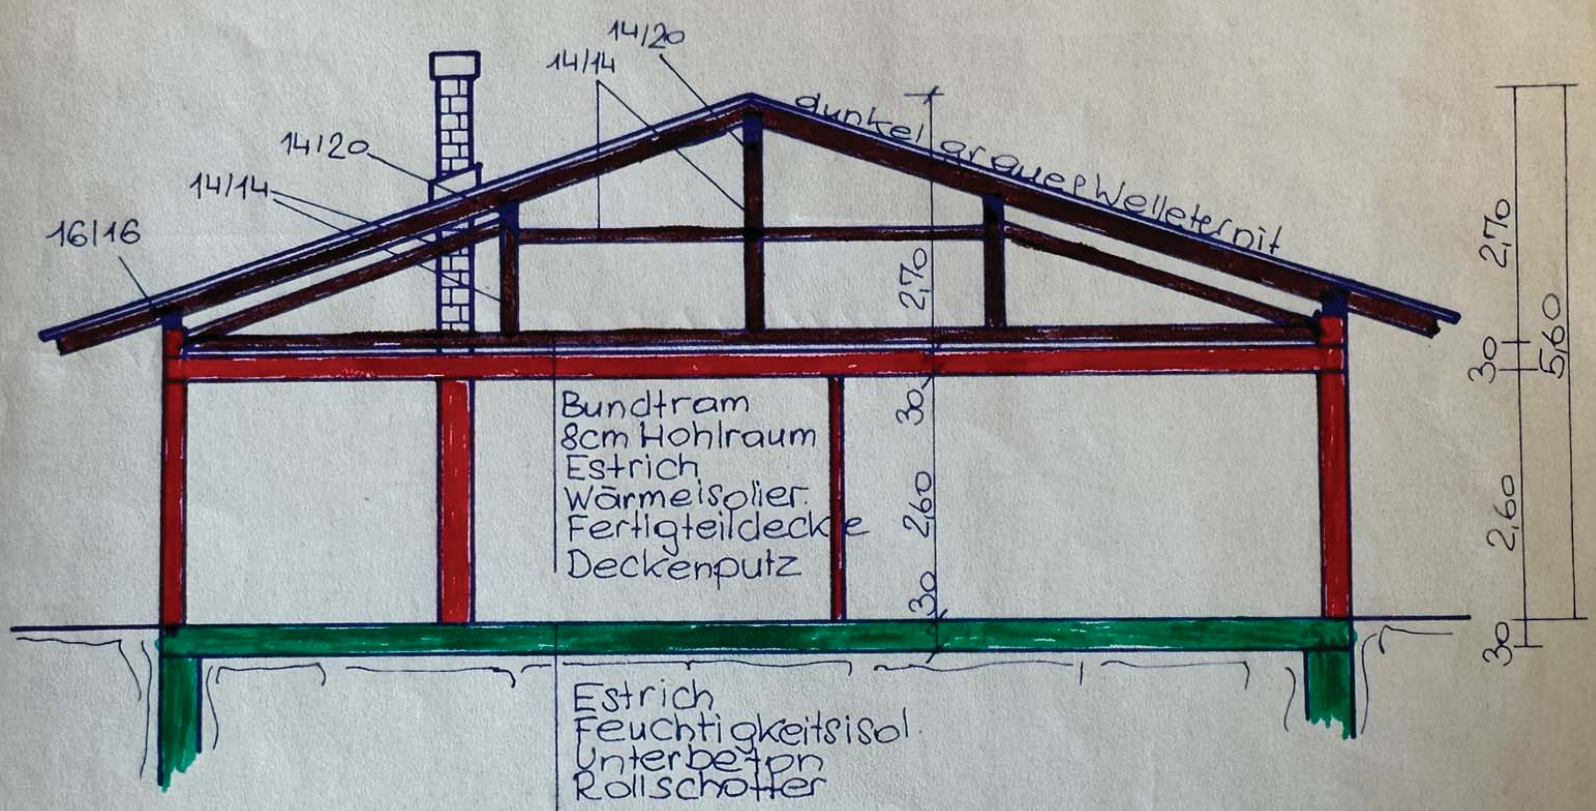 14/20
14/14
14/20
14/14
16/16
dunkel grauer Welleternit
2,70
30
2,60
30
2,70
30
2,60
30
5,60
Bundtram
8cm Hohlraum
Estrich
Wärmeisolier.
Fertigteildecke
Deckenputz
Estrich
Feuchtigkeitsisol.
Unterbeton
Rollschotter